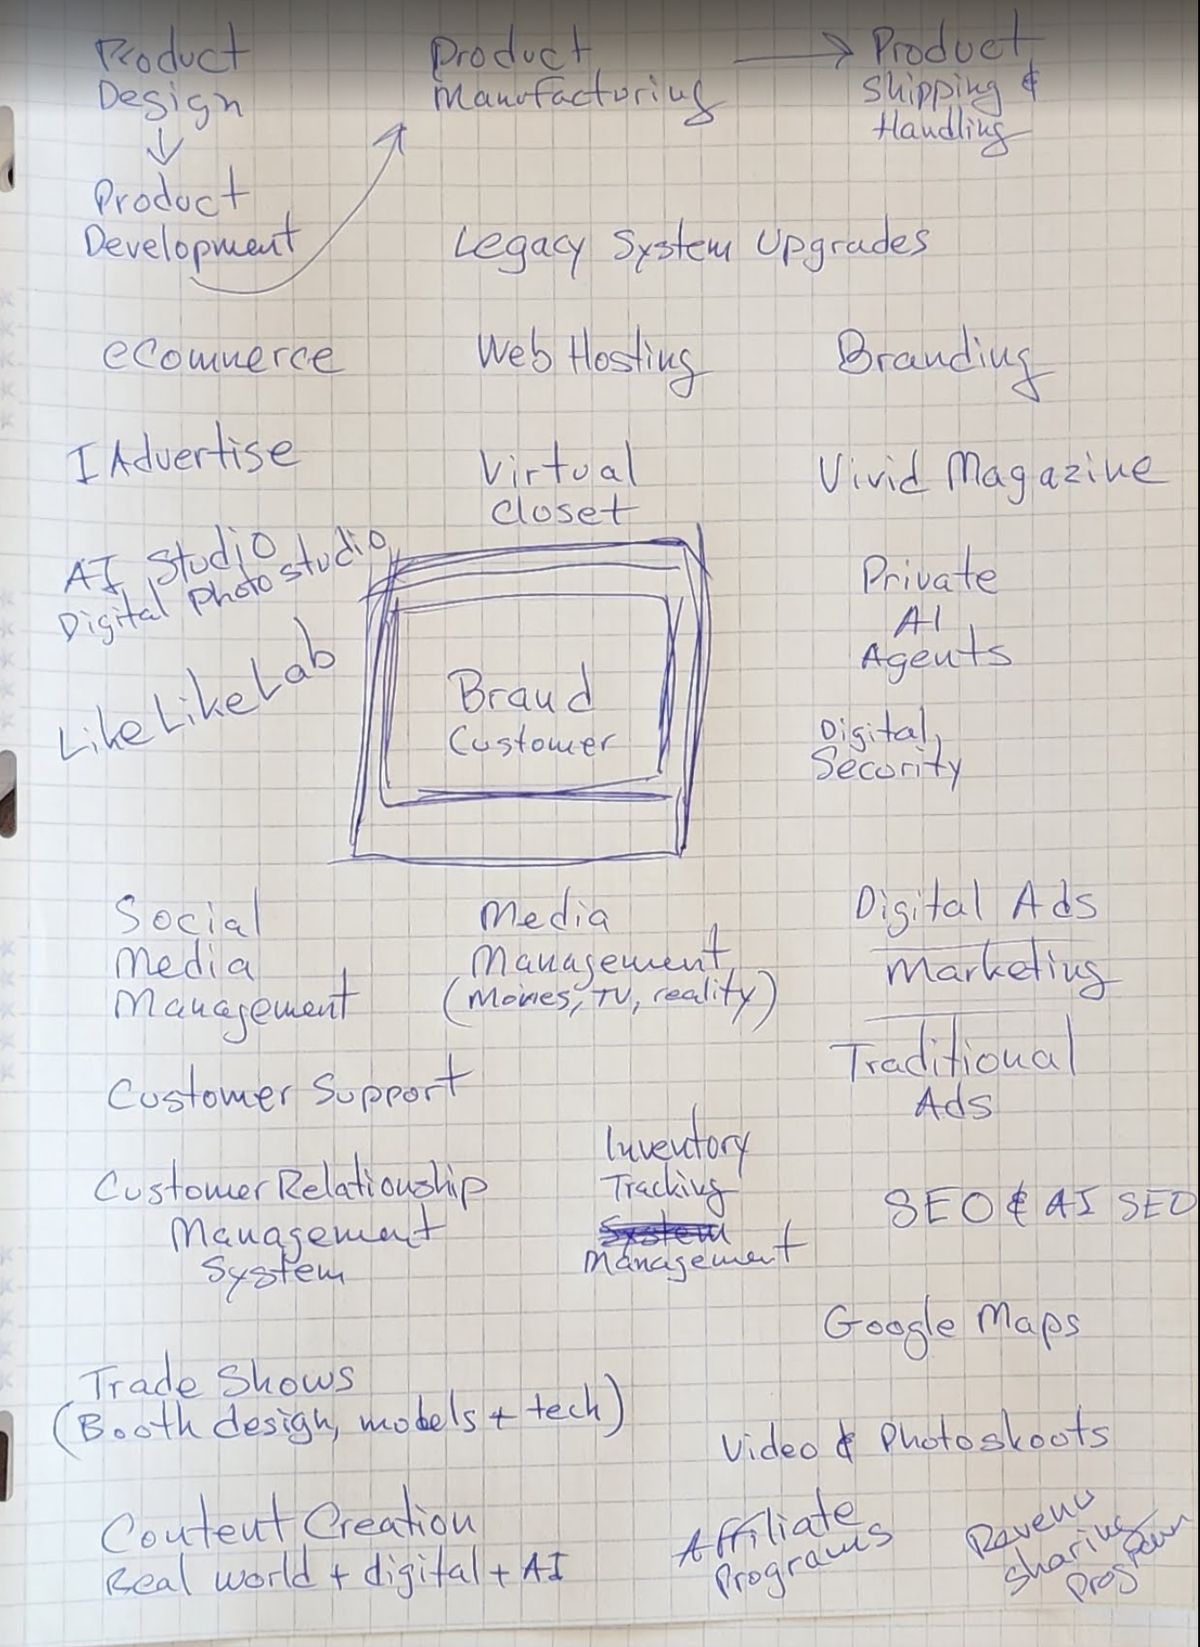 Product
Design
Product
Manufacturing
Product
Shipping &
Handling
Product
Development
Legacy System Upgrades
eCommerce
Web Hosting
Branding
I Advertise
Virtual
Closet
Vivid Magazine
AI Studio
Digital Photo studio
LikeLikeLab
Private
AI
Agents
Brand
Customer
Digital
Security
Social
Media
Management
Media
Management
(Movies, TV, reality)
Digital Ads
Marketing
Traditional
Ads
Customer Support
Customer Relationship
Management
System
Inventory
Tracking
System
Management
SEO & AI SEO
Google Maps
Trade Shows
(Booth design, models + tech)
Video & Photoshoots
Content Creation
Real world + digital + AI
Affiliate
Programs
Revenu
Sharing
Program